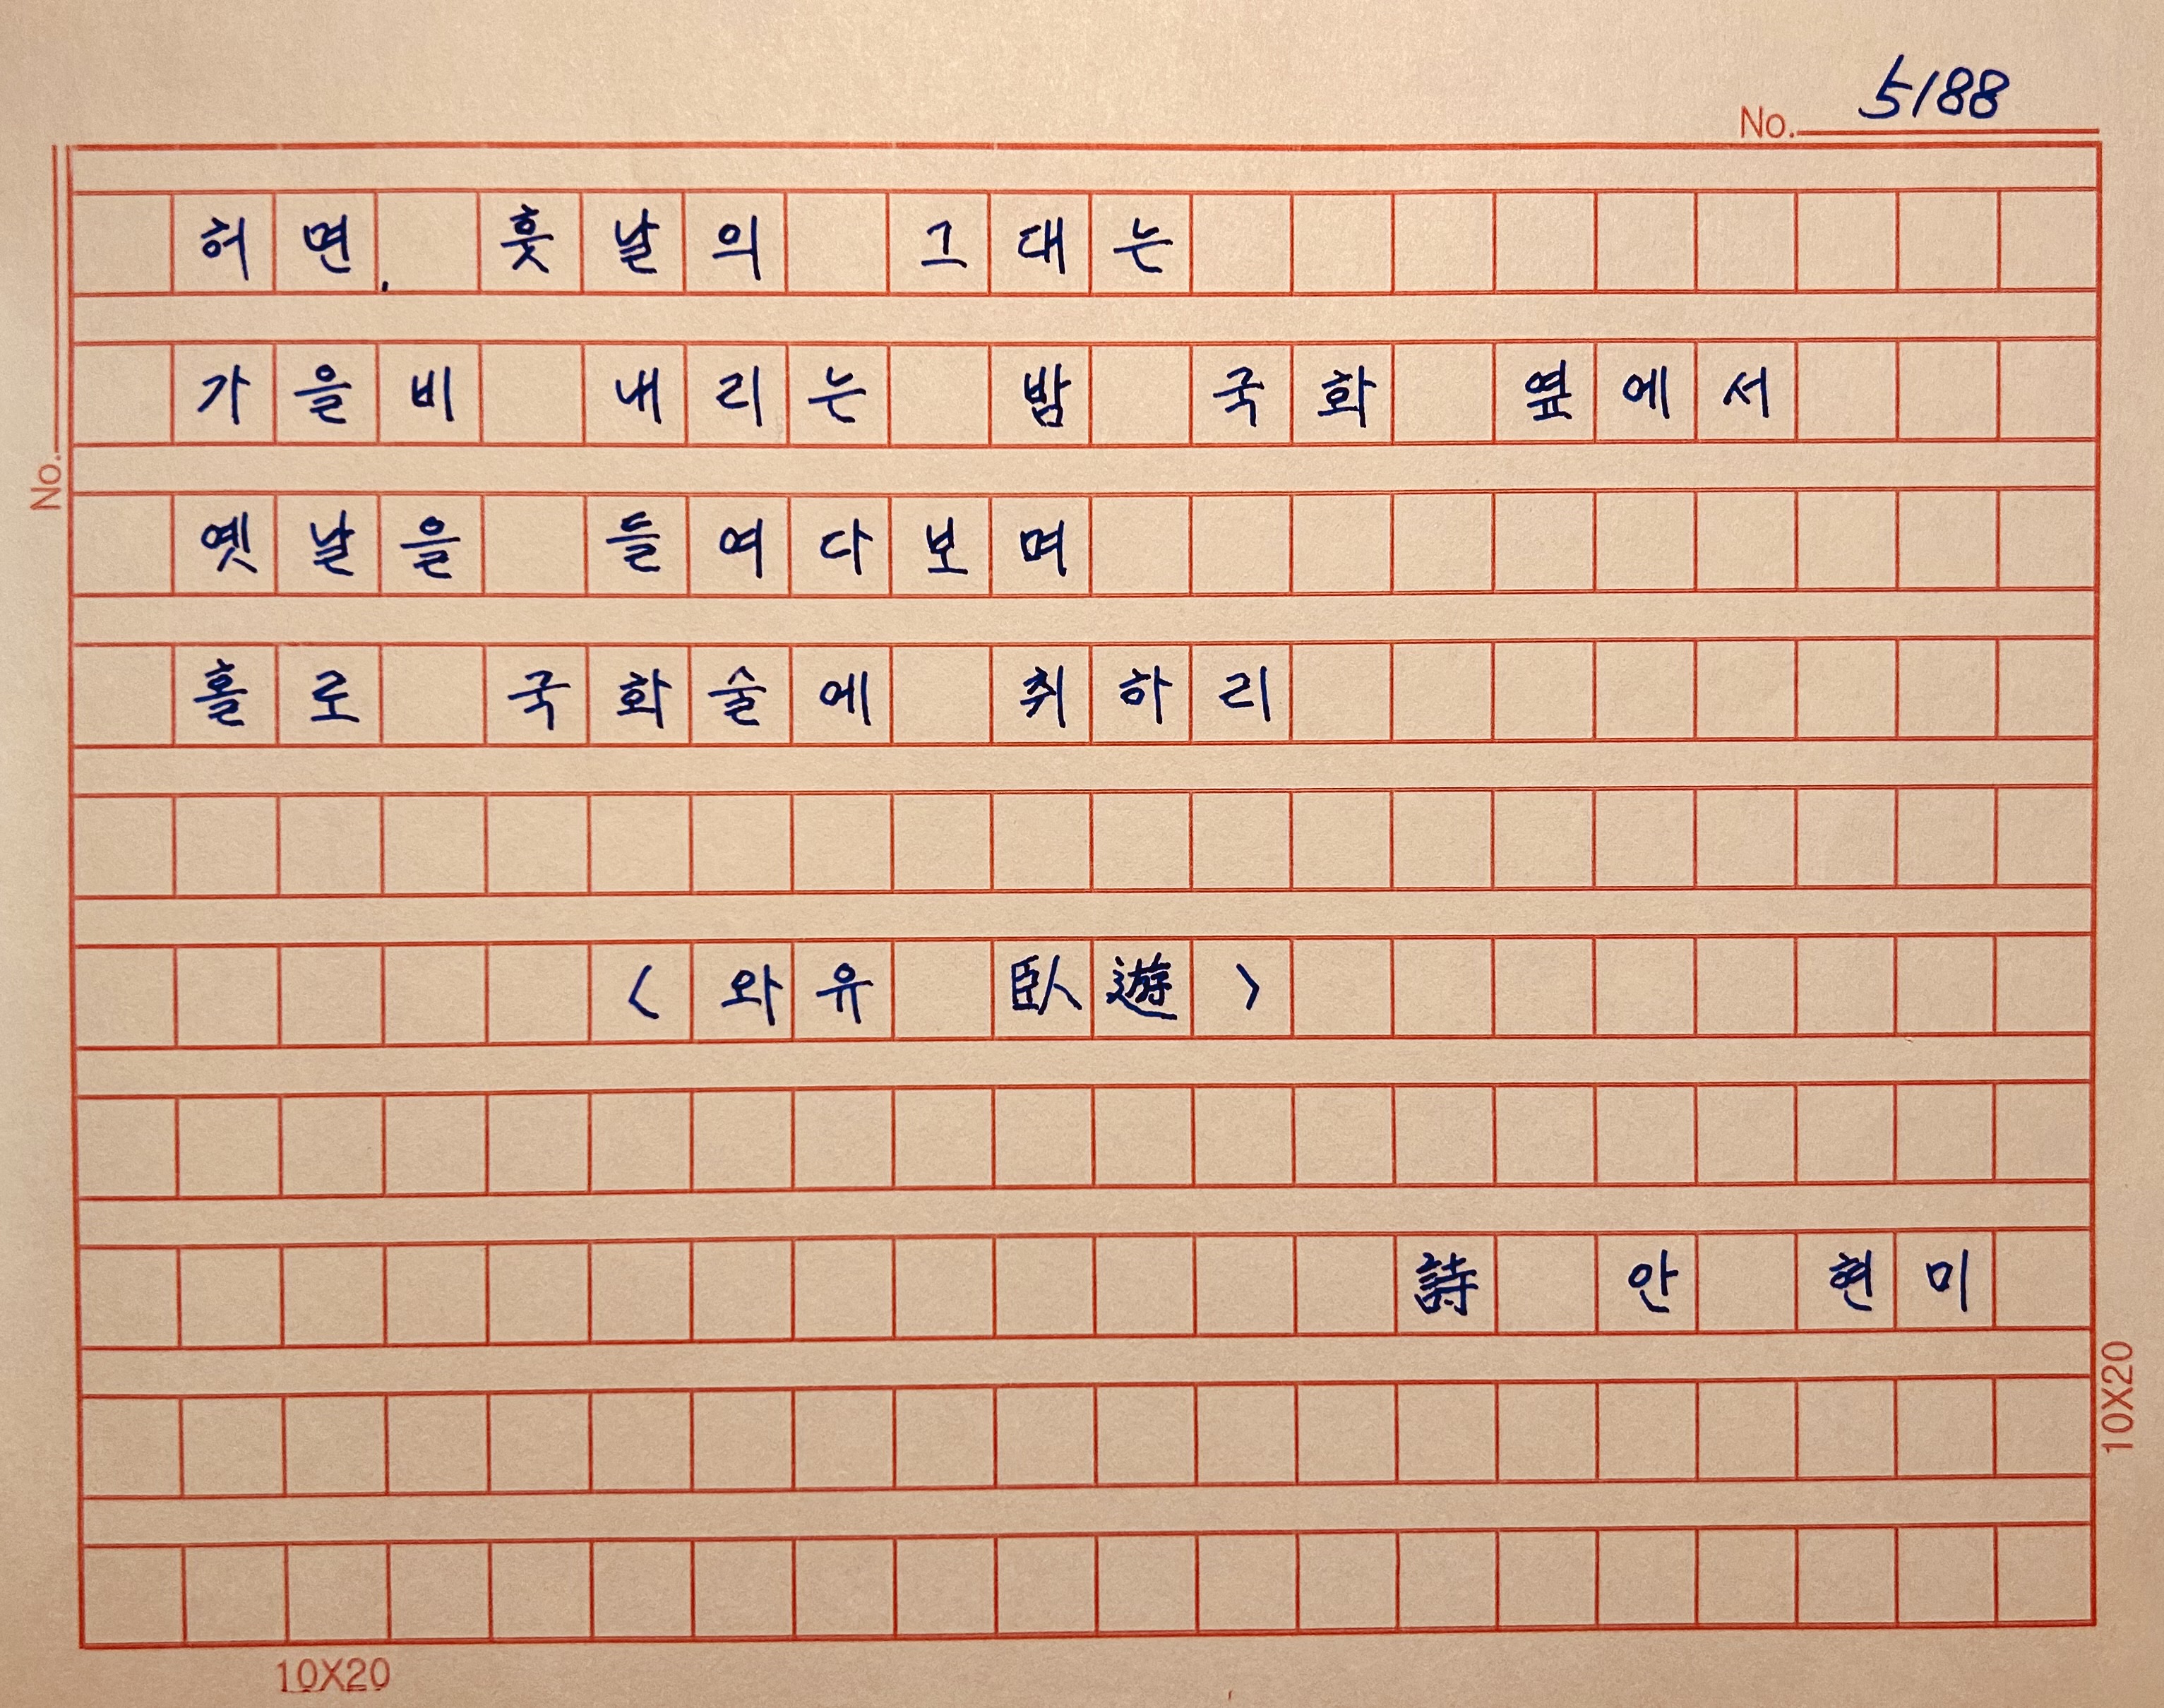 No. 5188
허면, 훗날의 그대는
가을비 내리는 밤 국화 옆에서
No.
옛날을 들여다보며
홀로 국화술에 취하리
<와유 臥遊>
詩 안 현미
10X20
10X20